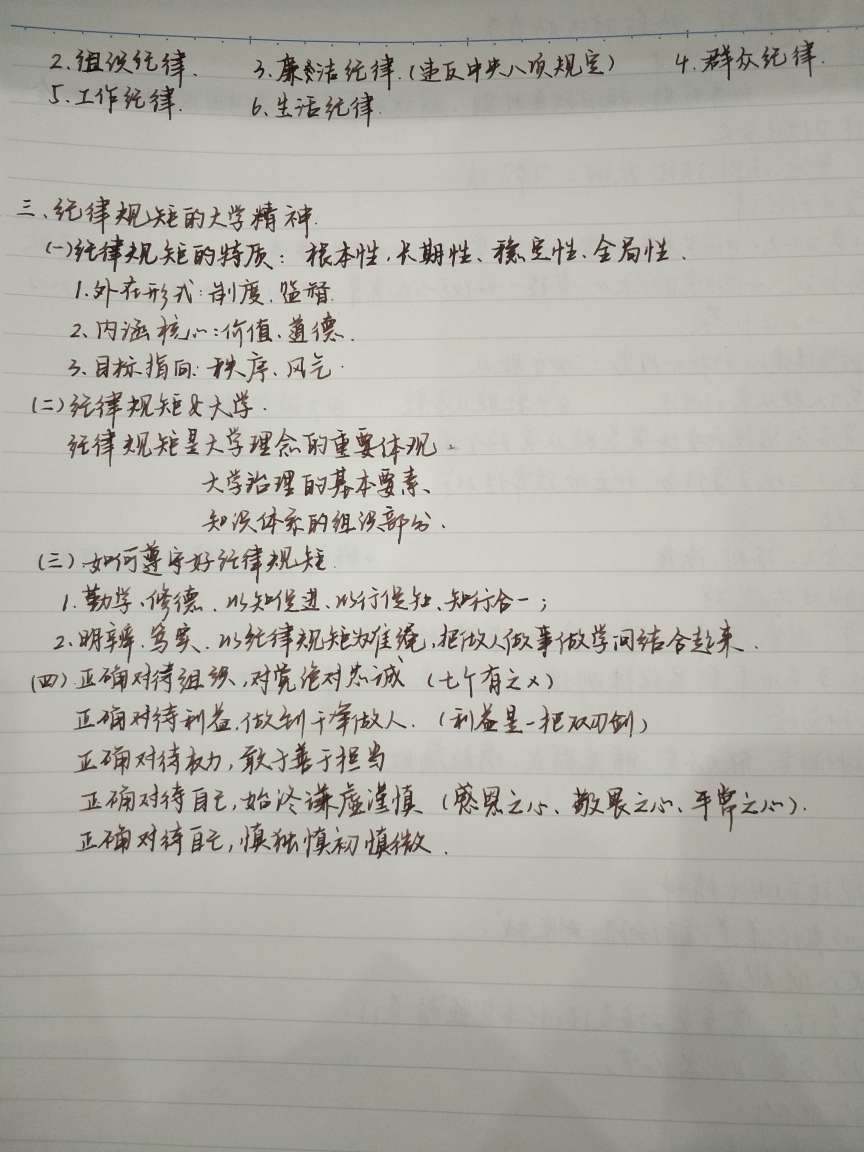 2.组织纪律. 3.廉洁纪律.(违反中央八项规定) 4.群众纪律.
5.工作纪律. 6.生活纪律.
三、纪律规矩的大学精神.
(一)纪律规矩的特质: 根本性、长期性、稳定性、全局性.
1.外在形式:制度、监督.
2、内涵核心:价值、道德.
3.目标指向:秩序、风气.
(二)纪律规矩&大学.
纪律规矩是大学理念的重要体现、
大学治理的基本要素、
知识体系的组织部分.
(三)如何遵守好纪律规矩.
1.勤学、修德、以知促进、以行促知、知行合一;
2.明辨.笃实、以纪律规矩为准绳,把做人做事做学问结合起来.
(四)正确对待组织,对党绝对忠诚 (七个有之×)
正确对待利益,做到干净做人. (利益是一把双刃剑)
正确对待权力,敢于善于担当
正确对待自己,始终谦虚谨慎 (感恩之心、敬畏之心、平常之心).
正确对待自己,慎独慎初慎微.